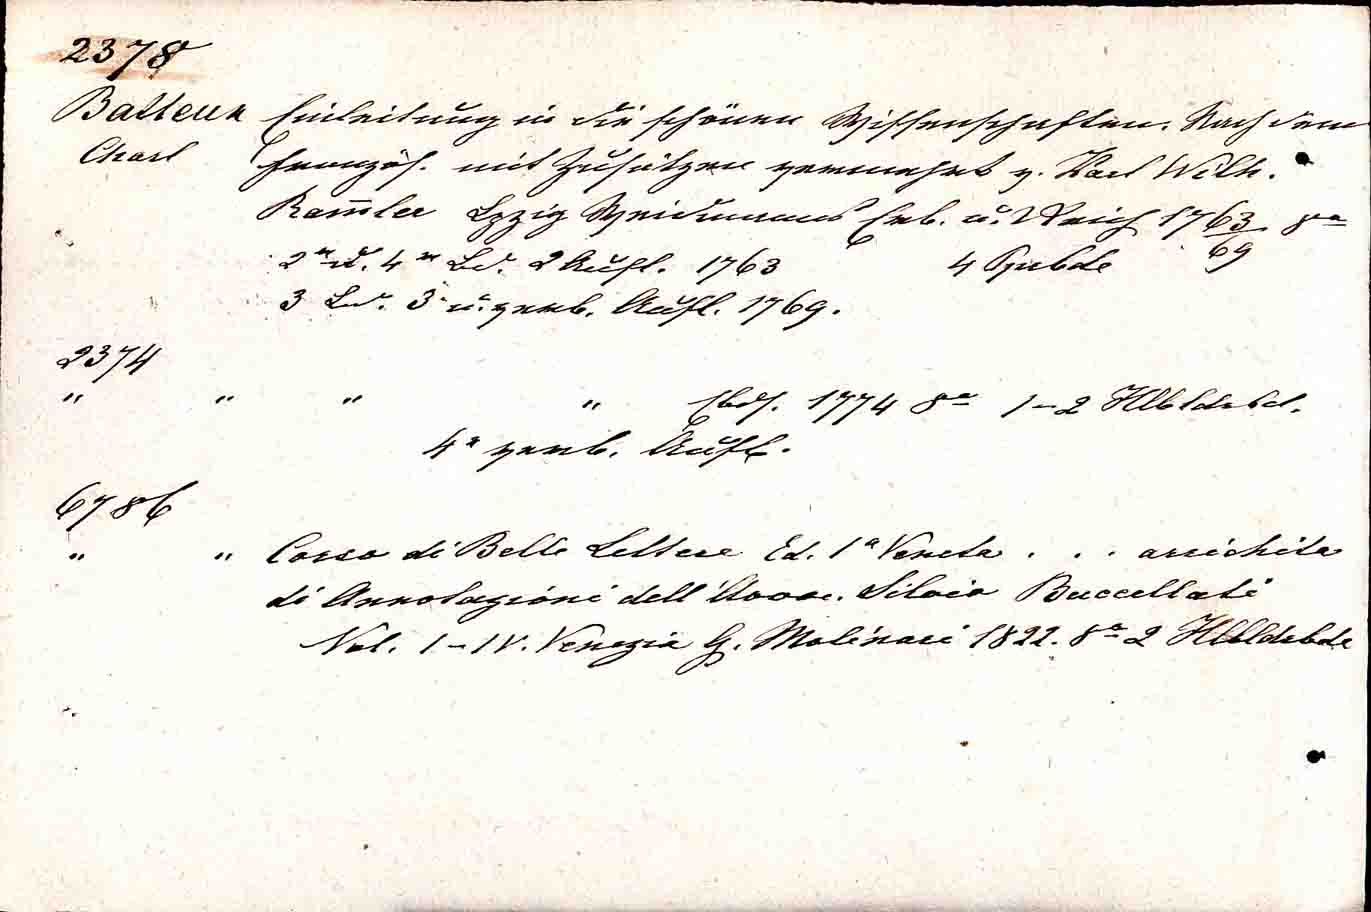 2378
Batteux Einleitung in die schönen Wissenschaften. Nach dem
Charl Französ. mit Zusätzen vermehrt v. Karl Wilh.
Ram̄ler Lpzig Weidmanns Erb. u. Reich 1763/69 8°
2r u. 4r Bd. 2 Aufl. 1763 4 Ppbde
3 Bd. 3 u. verb. Aufl. 1769.
2374
" " " " Ebds. 1774 8° 1-2 Hlbldrbd.
4e verb. Aufl.
6786
" " Corso di Belle Lettere Ed. 1a Veneta . . . arrichita
di Annotazioni dell' Silvio Buccellati
Vol. I-IV. Venezia G. Molinari 1822. 8° 2 Hlbldrbde